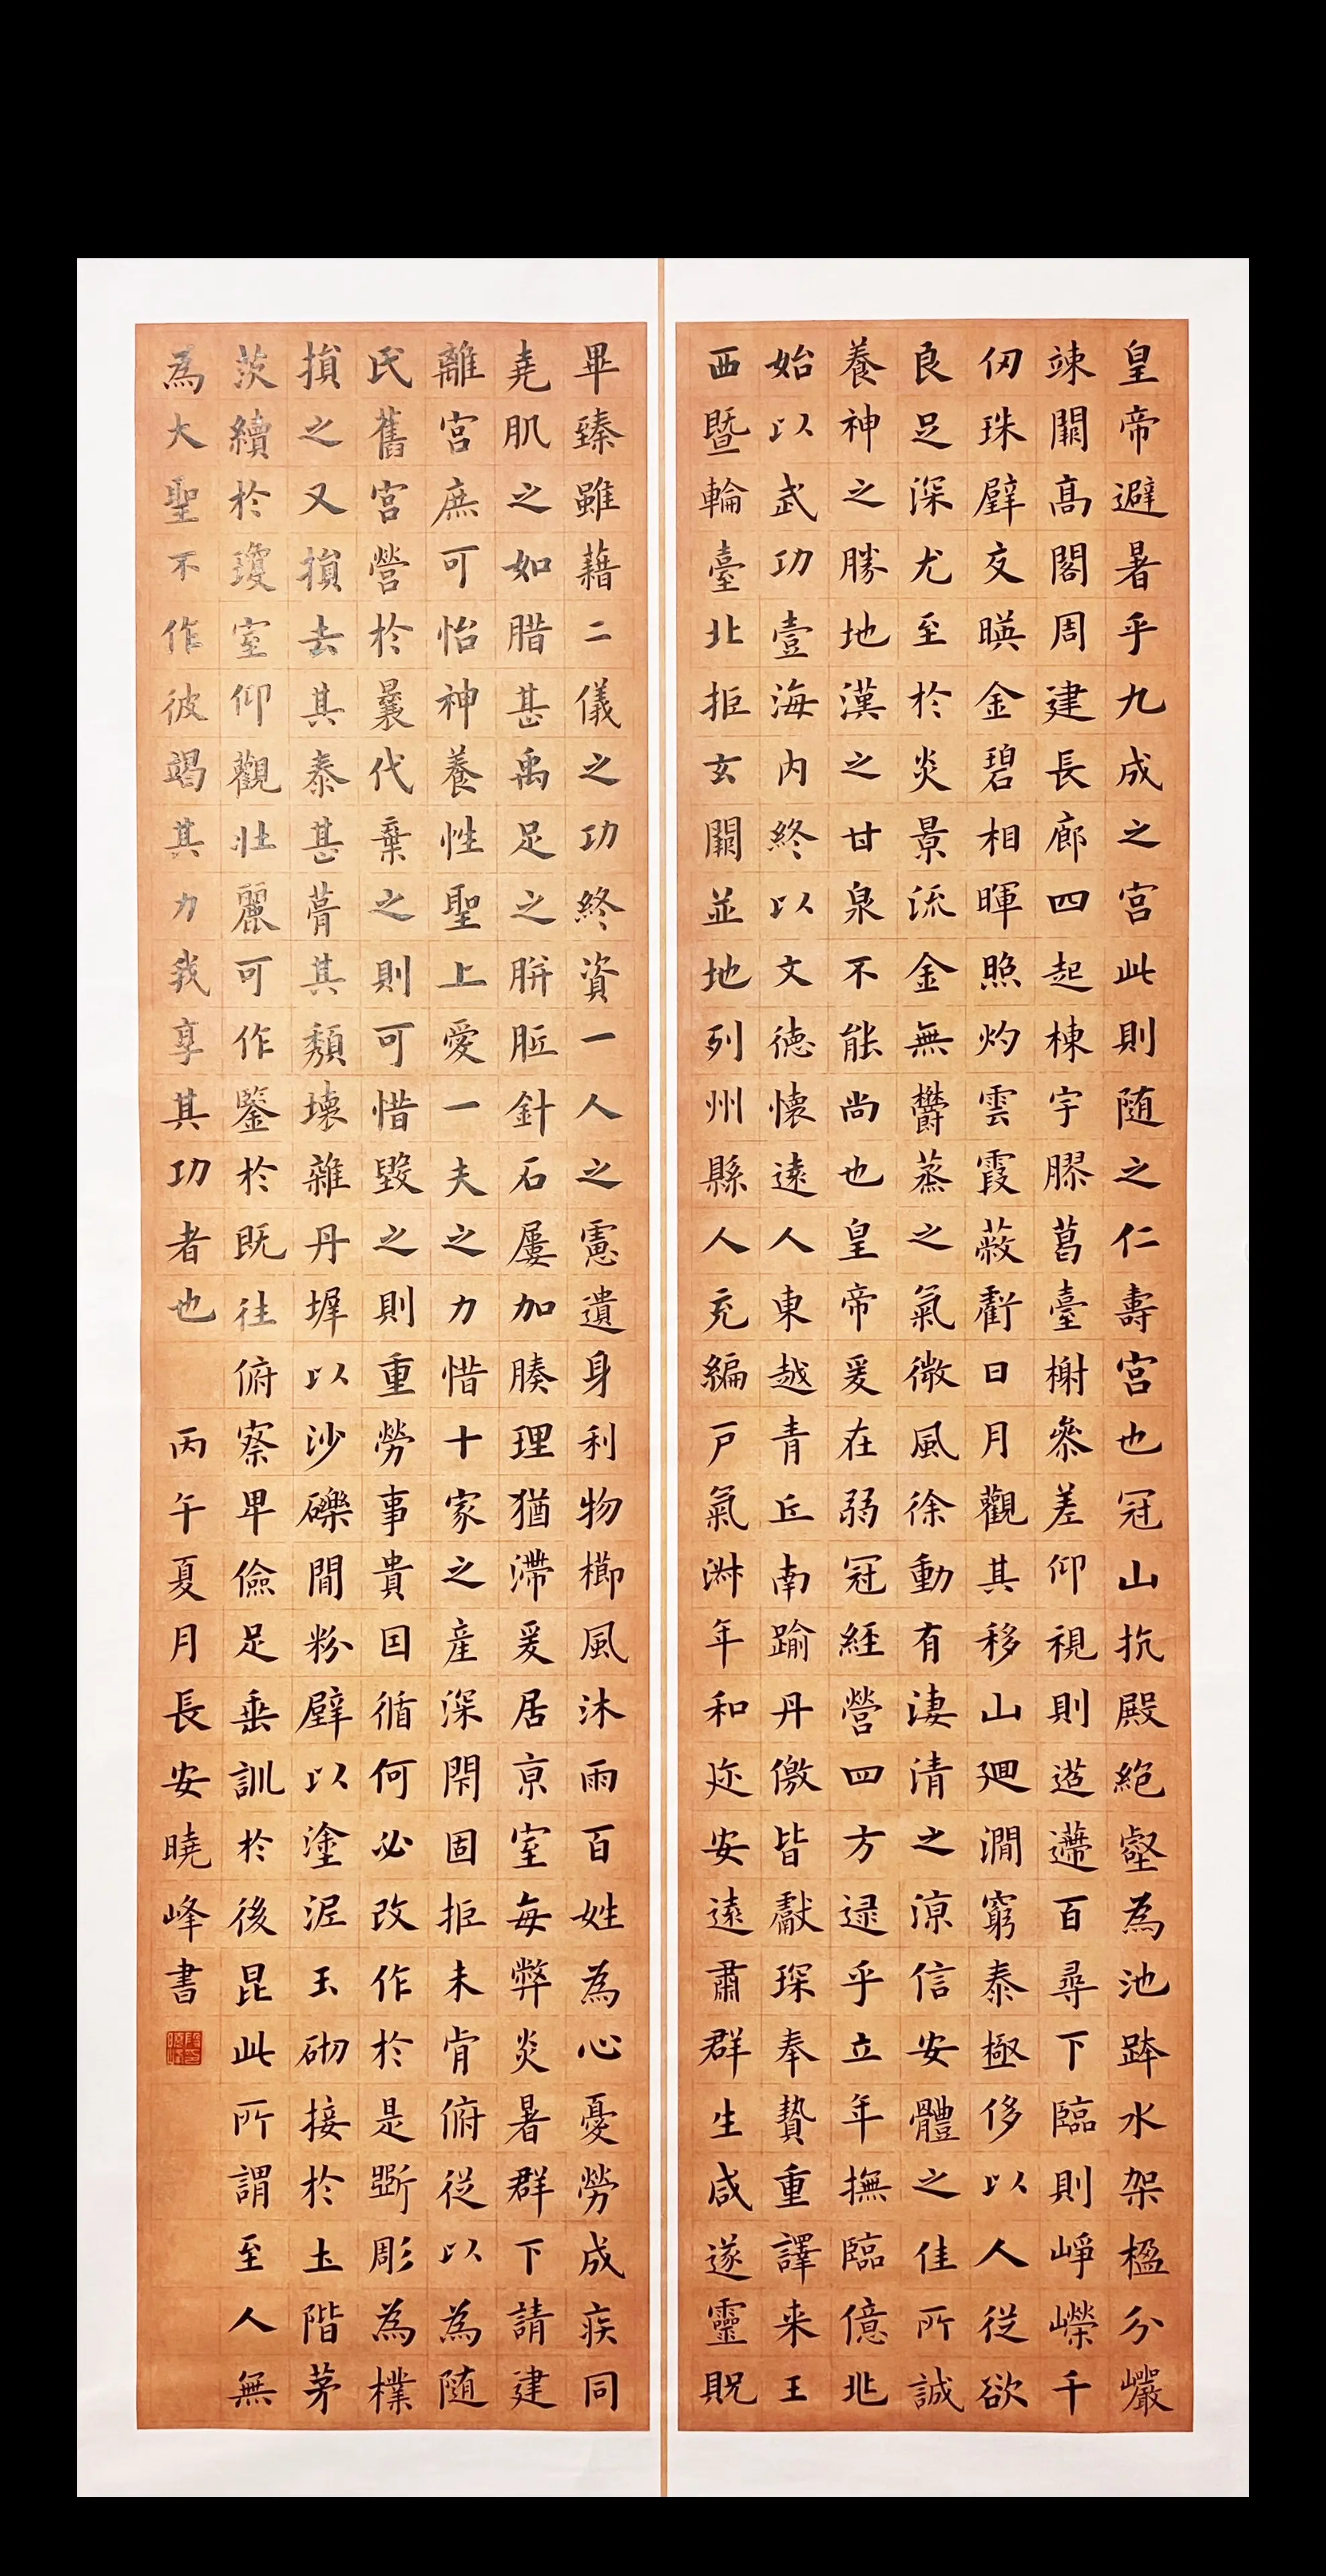 皇帝避暑乎九成之宮此則随之仁壽宮也冠山抗殿絕壑為池跨水架楹分巖
竦闕高閣周建長廊四起棟宇膠葛臺榭參差仰視則迢遰百尋下臨則崢嶸千
仞珠璧交暎金碧相暉照灼雲霞蔽虧日月觀其移山廻澗窮泰極侈以人從欲
良足深尤至於炎景流金無欝蒸之氣微風徐動有淒清之涼信安體之佳所誠
養神之勝地漢之甘泉不能尚也皇帝爰在弱冠經營四方逯乎立年撫臨億兆
始以武功壹海內終以文德懷遠人東越青丘南踰丹儌皆獻琛奉贄重譯来王
西暨輪臺北拒玄闕並地列州縣人充編戶氣淋年和迩安遠肅群生咸遂靈貺
畢臻雖藉二儀之功終資一人之慮遺身利物櫛風沐雨百姓為心憂勞成疾同
堯肌之如腊甚禹足之胼胝針石屢加腠理猶滯爰居京室每弊炎暑群下請建
離宮庶可怡神養性聖上愛一夫之力惜十家之產深閇固拒未肯俯從以為随
氏舊宮營於曩代棄之則可惜毀之則重勞事貴因循何必改作於是斲彫為樸
損之又損去其泰甚葺其頹壞雜丹墀以沙礫間粉壁以塗泥玉砌接於土階茅
茨續於瓊室仰觀壯麗可作鑒於既往俯察卑儉足垂訓於後昆此所謂至人無
為大聖不作彼竭其力我享其功者也 丙午夏月長安曉峰書